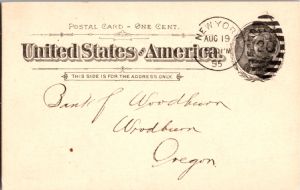 POSTAL CARD - ONE CENT.
United States of America.
THIS SIDE IS FOR THE ADDRESS ONLY.
NEW YORK
AUG 19
95
Bank of Woodburn
Woodburn
Oregon.